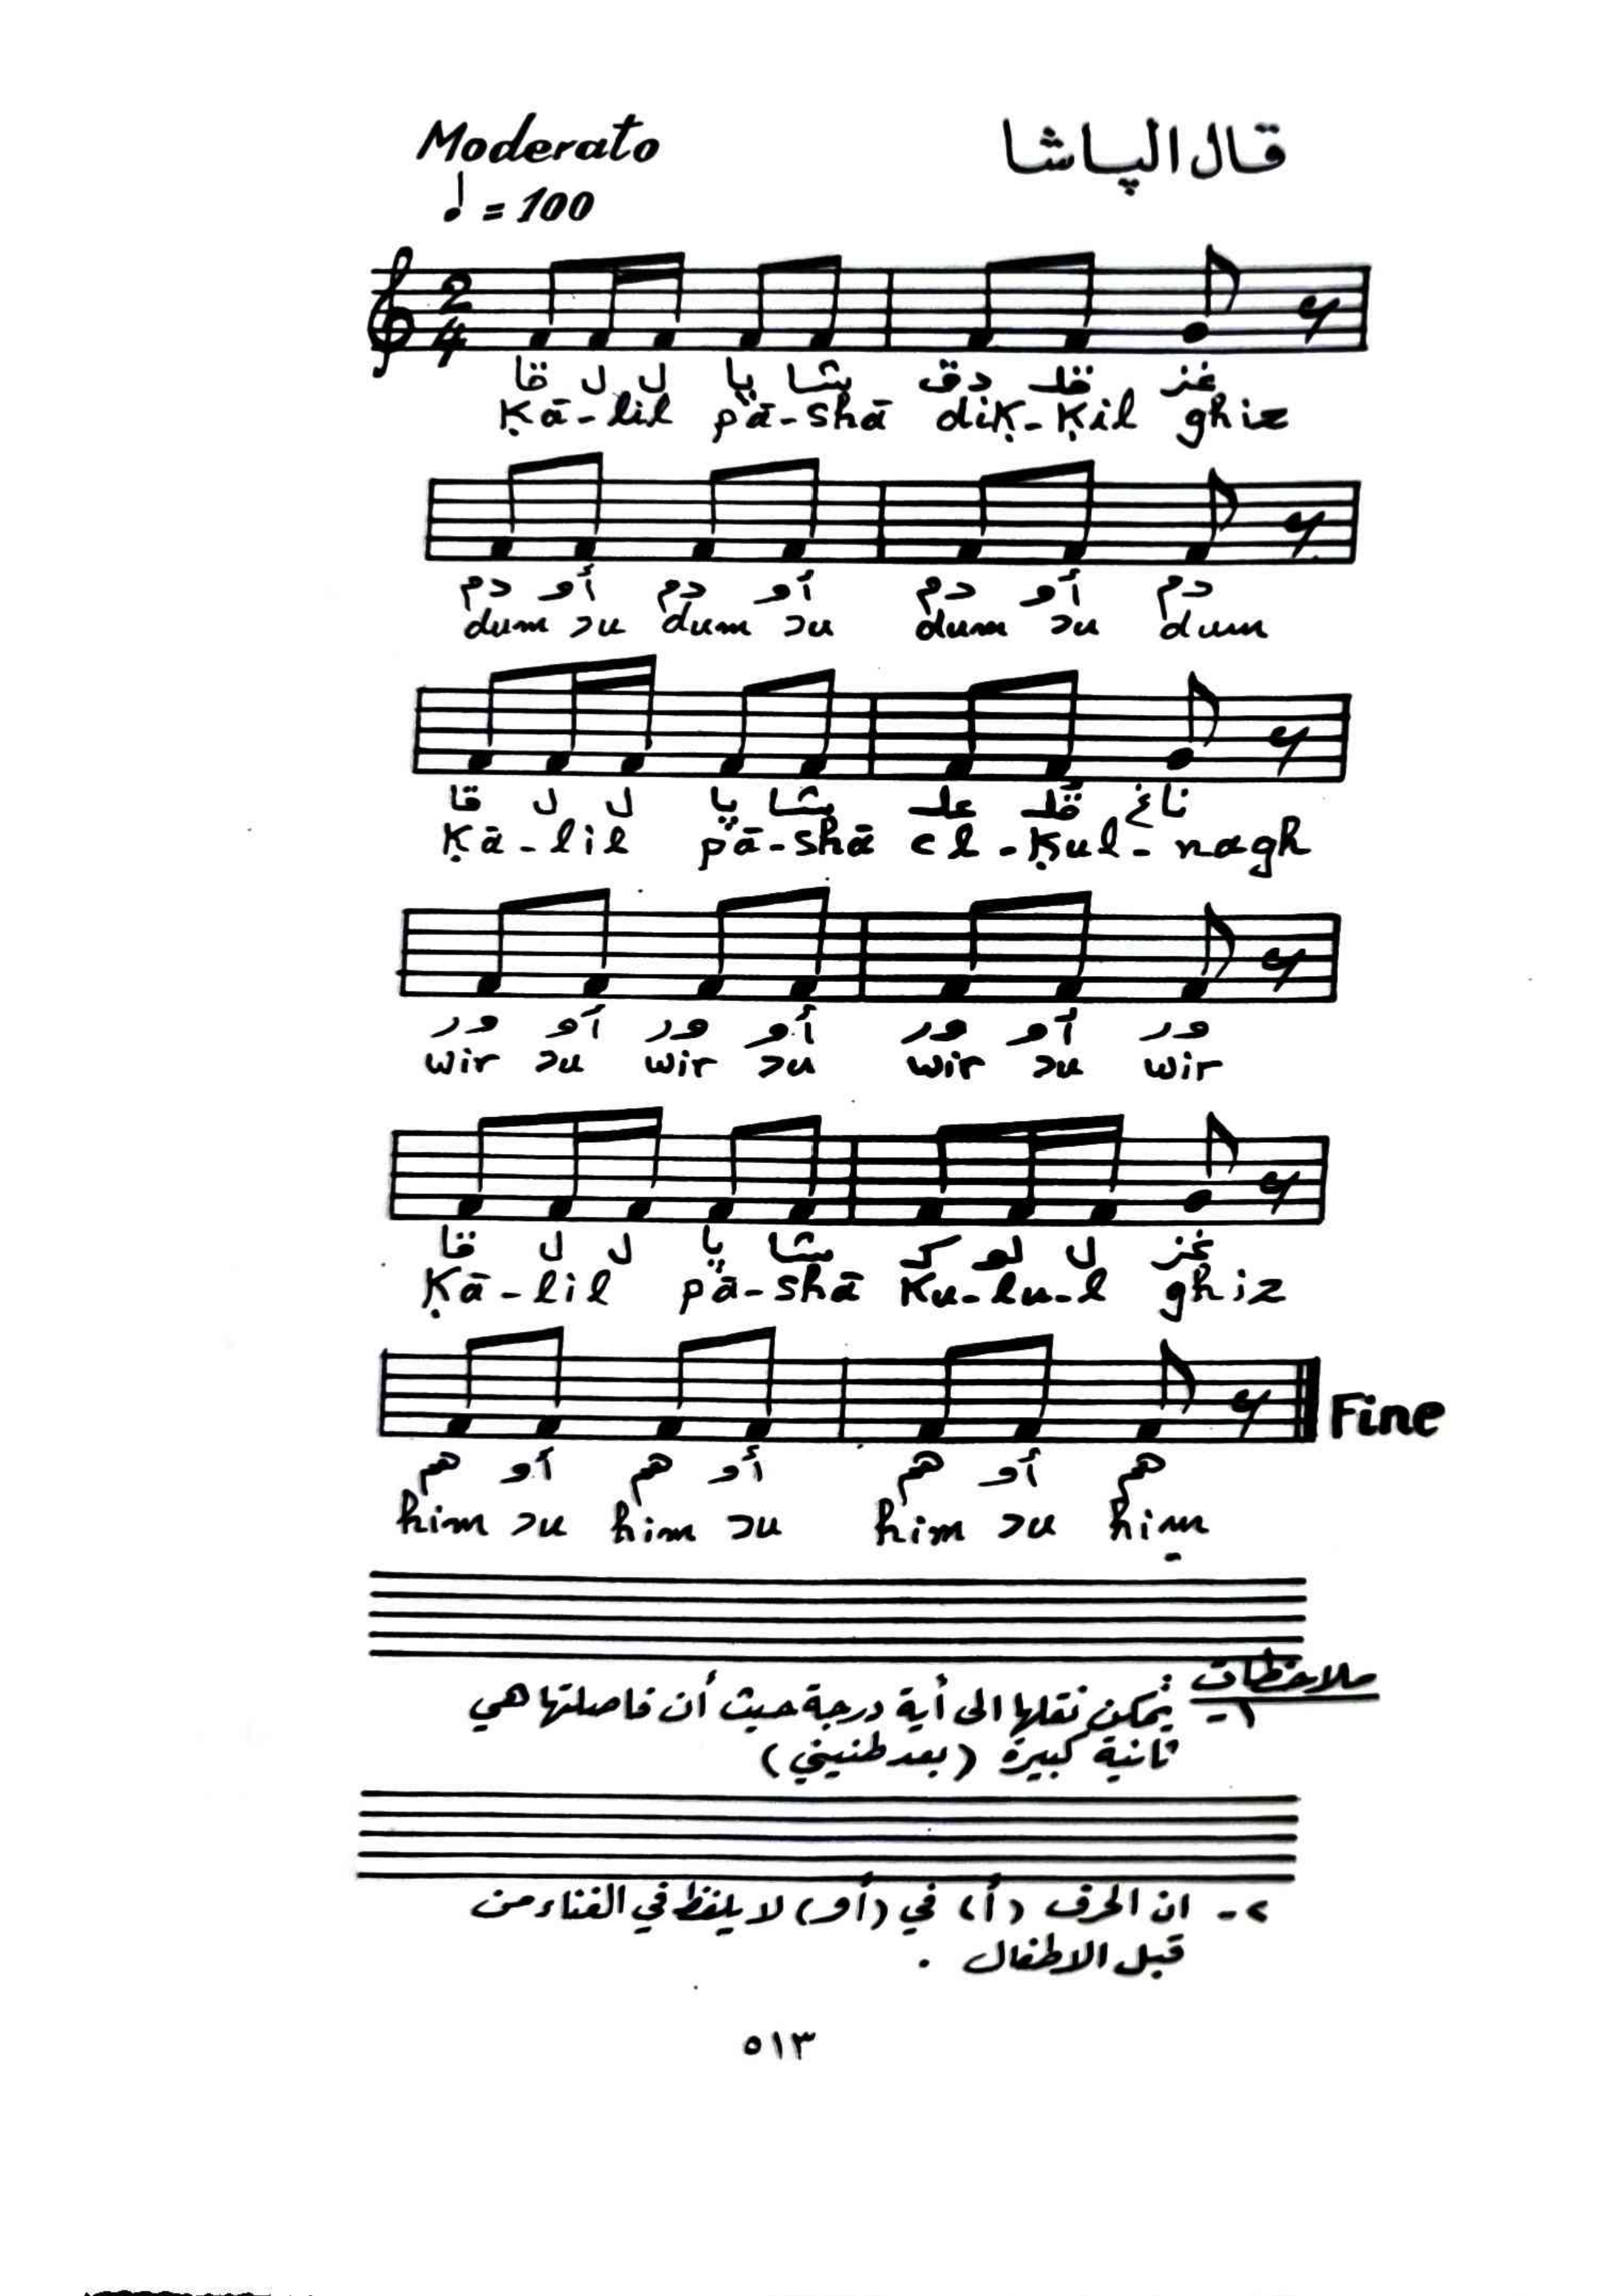 Moderato
قال الپاشا
♩ = 100
2
4
قا ل ل پا شا دق قلـ غز
Ḳā - lil pā - shā diḲ - Ḳil ghiz
دم أو دم أو دم أو دم
dum ɔu dum ɔu dum ɔu dum
قا ل ل پا شا علـ قُلـ ناغ
Ḳā - lil pā - shā cl - Ḳul - nagh
ور أو ور أو ور أو ور
wir ɔu wir ɔu wir ɔu wir
قا ل ل پا شا كـ لو ل غز
Ḳā - lil pā - shā Ku - lu - l ghiz
Fine
هم أو هم أو هم أو هم
him ɔu him ɔu him ɔu him
ملاحظات
١- يمكن نقلها الى أية درجة حيث أن فاصلتها هي
ثانية كبيرة (بعد طنيني)
٢- ان الحرف (أ) في (أو) لا يلفظ في الغناء من
قبل الاطفال .
٥١٣